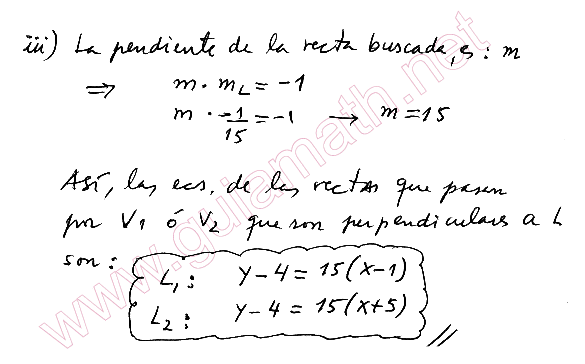 iii) La pendiente de la recta buscada, es: m
⇒ m · m_L = -1
m · -1/15 = -1 → m = 15
Así, las ecs. de las rectas que pasan
por V1 ó V2 que son perpendiculares a L
son:
L1: y-4 = 15(x-1)
L2: y-4 = 15(x+5)
www.guiamath.net